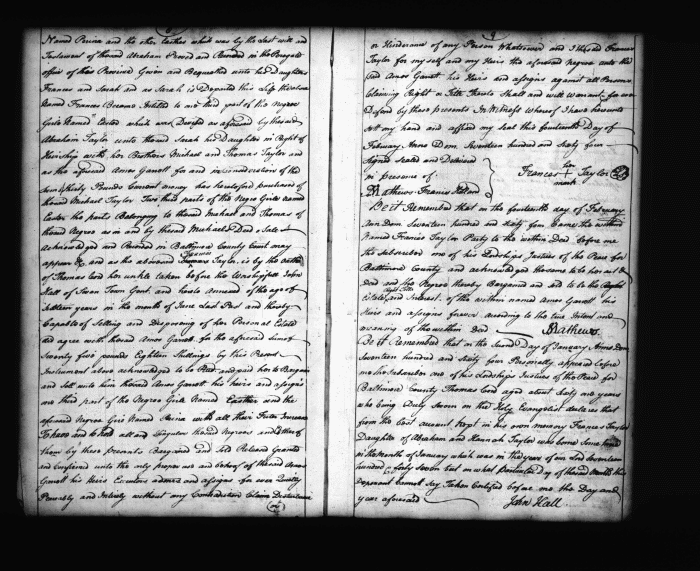 Named Perina and the other Easther which was by the Last will and
Testament of the said Abraham Proved and Recorded in the Prerogative
office of this Province Given and Bequeathed unto his Daughters
Frances and Sarah and as Sarah is Departed this Life the above
Named Frances Became Intitled to one third part of the Negroe
Girls Named Easter which was Devised as aforesaid by the said
Abraham Taylor unto the said Sarah his Daughter in Right of
Heirship with her Brothers Michael and Thomas Taylor and
as the aforesaid Amos Garrett for and in consideration of the
Sum of Sixty Pounds Current money has heretofore purchased of
the said Michael Taylor Two third parts of the Negroe Girls named
Easter the parts Belonging to the said Michael and Thomas of
the said Negroe as in and by the said Michaels Deed of Sale
Acknowledged and Recorded in Baltimore County Court may
appear & and as the aforesaid Frances Taylor is by the oath
of Thomas Cord her unkle taken before the Worshipfull John
Hall of Swan Town Gent. and hereto annexed of the age of
Sixteen years in the month of June Last Past and thereby
Capable of Selling and Disposing of her Personal Estate
did agree with the said Amos Garrett for the aforesaid Sum of
Twenty five pounds Eighteen Shillings by this Recd
Instrument above acknowledged to be Paid and paid her to Bargain
and Sell unto him the said Amos Garrett his heirs and assigns
one third part of the Negroe Girls Named Easther and the
aforesaid Negroe Girls Named Perina with all their Future Increase
To have and to hold all and Singular the said Negroes and Either of
them by these presents Bargained and Sold Released Granted
and Confirmed unto the only proper use and behoof of the said Amos
Garrett his Heirs Executors admrs and assigns for ever Quietly
Peaceably and Intirely without any Contradiction Claim Disturbance
9
or Hinderance of any Person Whatsoever and I the said Frances
Taylor for my self and my Heirs the aforesaid Negroes unto the
said Amos Garrett his Heirs and assigns against all Persons
Claiming Right or Title thereto Shall and will warrant & for ever
Defend by these presents In Witness whereof I have hereunto
set my hand and affixed my seal this fourteenth Day of
February Anno Dom. Seventeen hundred and sixty four
Signed Sealed and Delivered
in presence of
Frances her + mark Taylor
Mathews Francis Holland
Be it Remembered that on the fourteenth day of February
Ann Dom Seventeen hundred and Sixty four Came the within
Named Frances Taylor Party to the within Deed before me
the Subscriber one of his Lordships Justices of the Peace for
Baltimore County and acknowledged the same to be her act &
Deed and the Negroes thereby Bargained and sold to be the Right
Estate and Interest of the within named Amos Garrett his
Heirs and assigns forever according to the true Intent and
meaning of the within Deed Mathews.
Be it Remembered that on the Second Day of January Anno Dom
Seventeen hundred and Sixty four Personally appeared before
me the Subscriber one of his Lordships Justices of the Peace for
Baltimore County Thomas Cord aged about Sixty one years
who being Duly Sworn on the Holy Evangelist declares that
from the best account kept in his own memory Frances Taylor
Daughter of Abraham and Hannah Taylor was born Some time
in the month of January which was in the year of our Lord Seventeen
hundred & forty seven but on what particular Day of the said Month this
Deponent Cannot Say Taken Certified before me the Day and
year aforesaid John Hall.